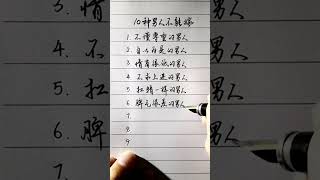 10种男人不能嫁
1. 不懂尊重的男人
2. 自以为是的男人
3. 情商很低的男人
4. 不求上进的男人
5. 杠精一样的男人
6. 脾气很差的男人
7.
8
9
4. 不
5. 杠
6. 脾
7.